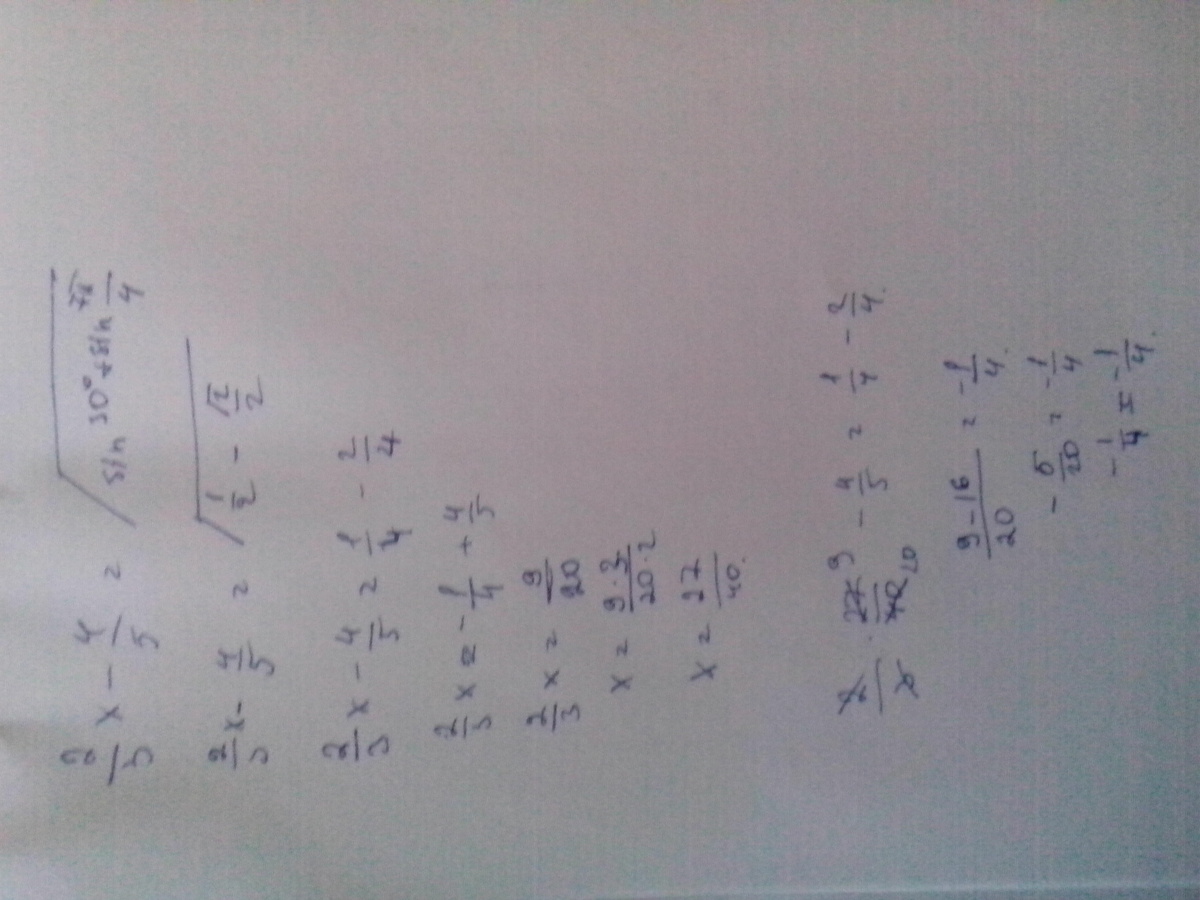 2/3 x - 4/5 = √(sin 30° + sin 7π/4)
2/3 x - 4/5 = √(1/2 - √2/2)
2/3 x - 4/5 = 1/4 - 2/4
2/3 x = - 1/4 + 4/5
2/3 x = 9/20
x = 9·3/20·2
x = 27/40.
2/3 · 27 9/40 20 - 4/5 = 1/4 - 2/4.
9-16/20 = - 1/4.
- 5/20 = - 1/4
- 1/4 = - 1/4.